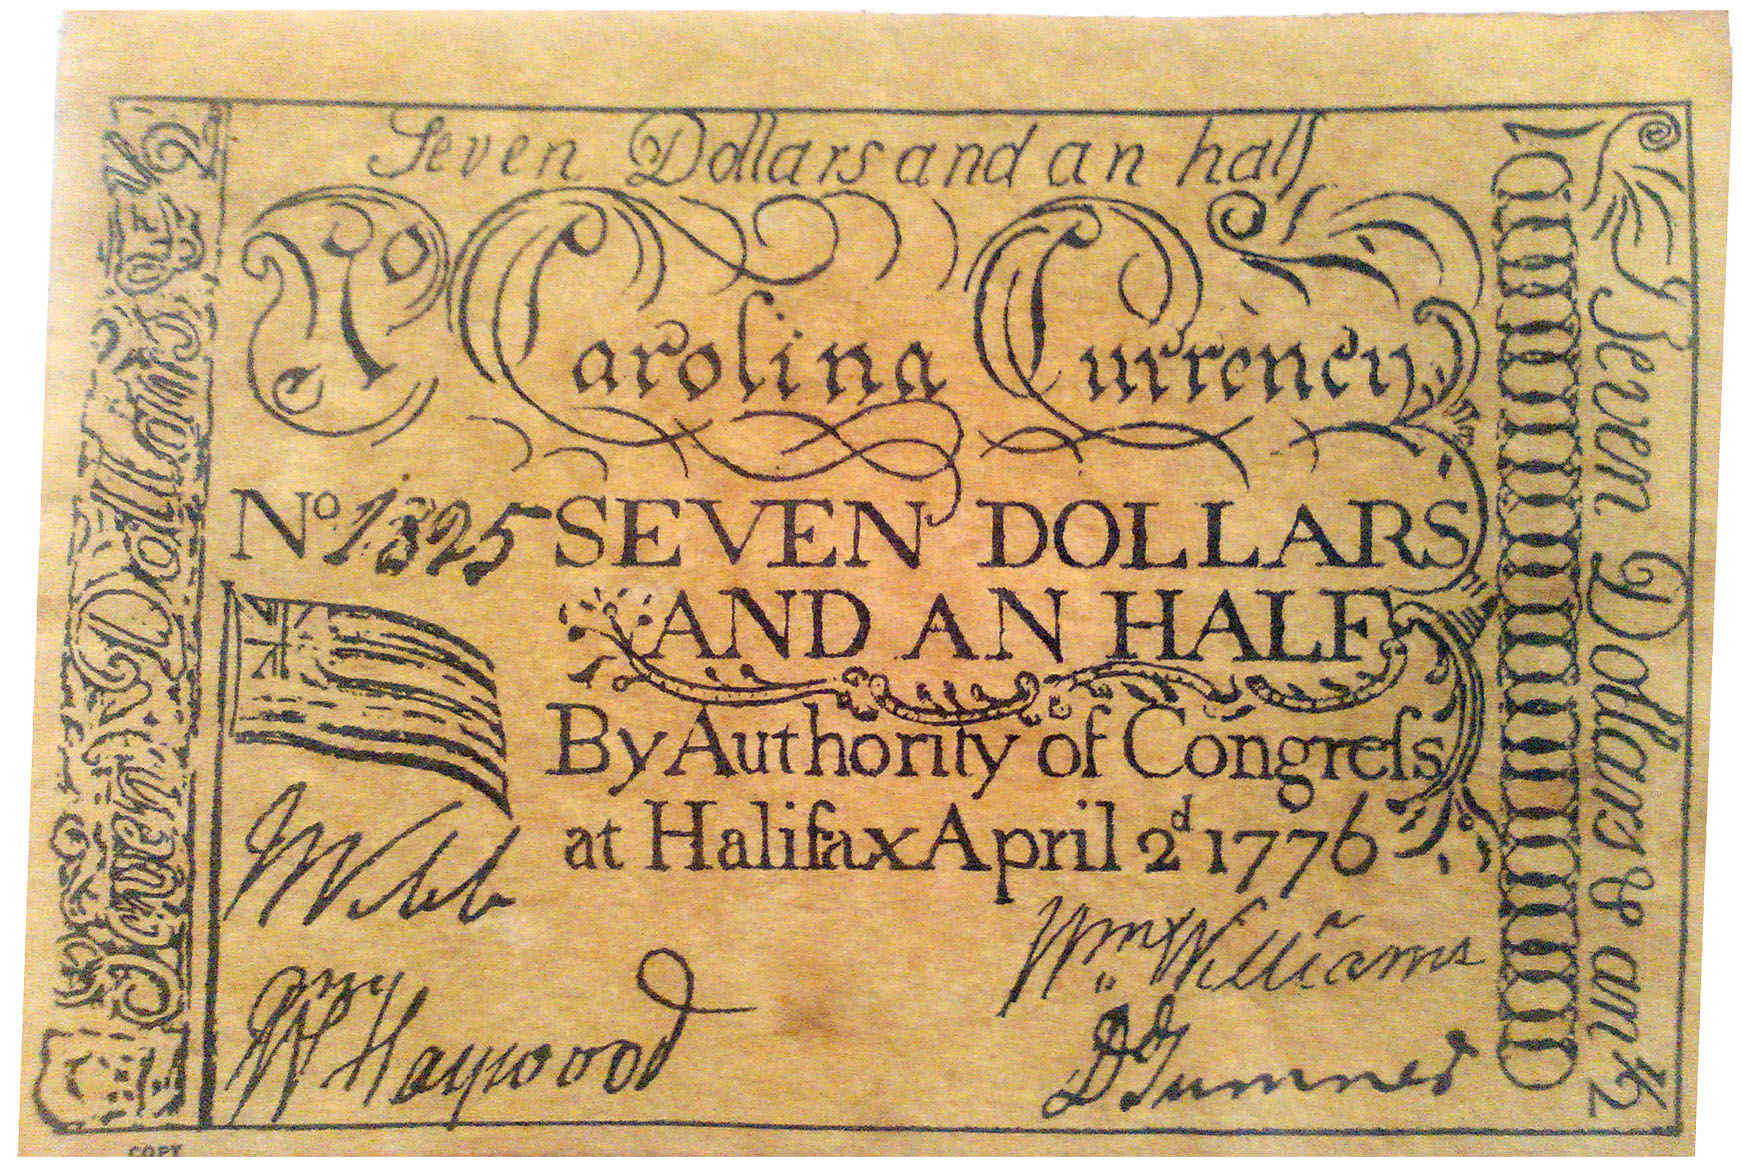 Seven Dollars and an half
No Carolina Currency
No 1325 SEVEN DOLLARS
AND AN HALF
By Authority of Congreſs
at Halifax April 2d 1776
Webb
Wm Williams
Wm Haywood
Dd Sumner
Seven Dollars & an ½
Dollars
COPY